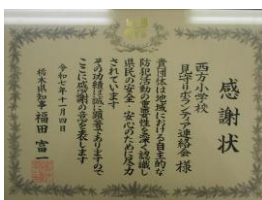 感謝状
西方小学校
見守りボランティア連絡会 様
貴団体は地域における自主的な
防犯活動の重要性を深く認識し
県民の安全・安心のために尽力
されています
その功績は誠に顕著でありますので
ここに感謝の意を表します
令和七年十一月四日
栃木県知事 福田富一